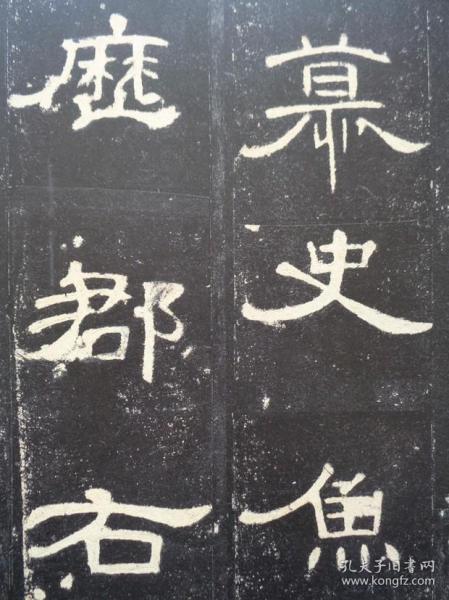 慕史魚
歷郡右
孔夫子旧书网
www.kongfz.com